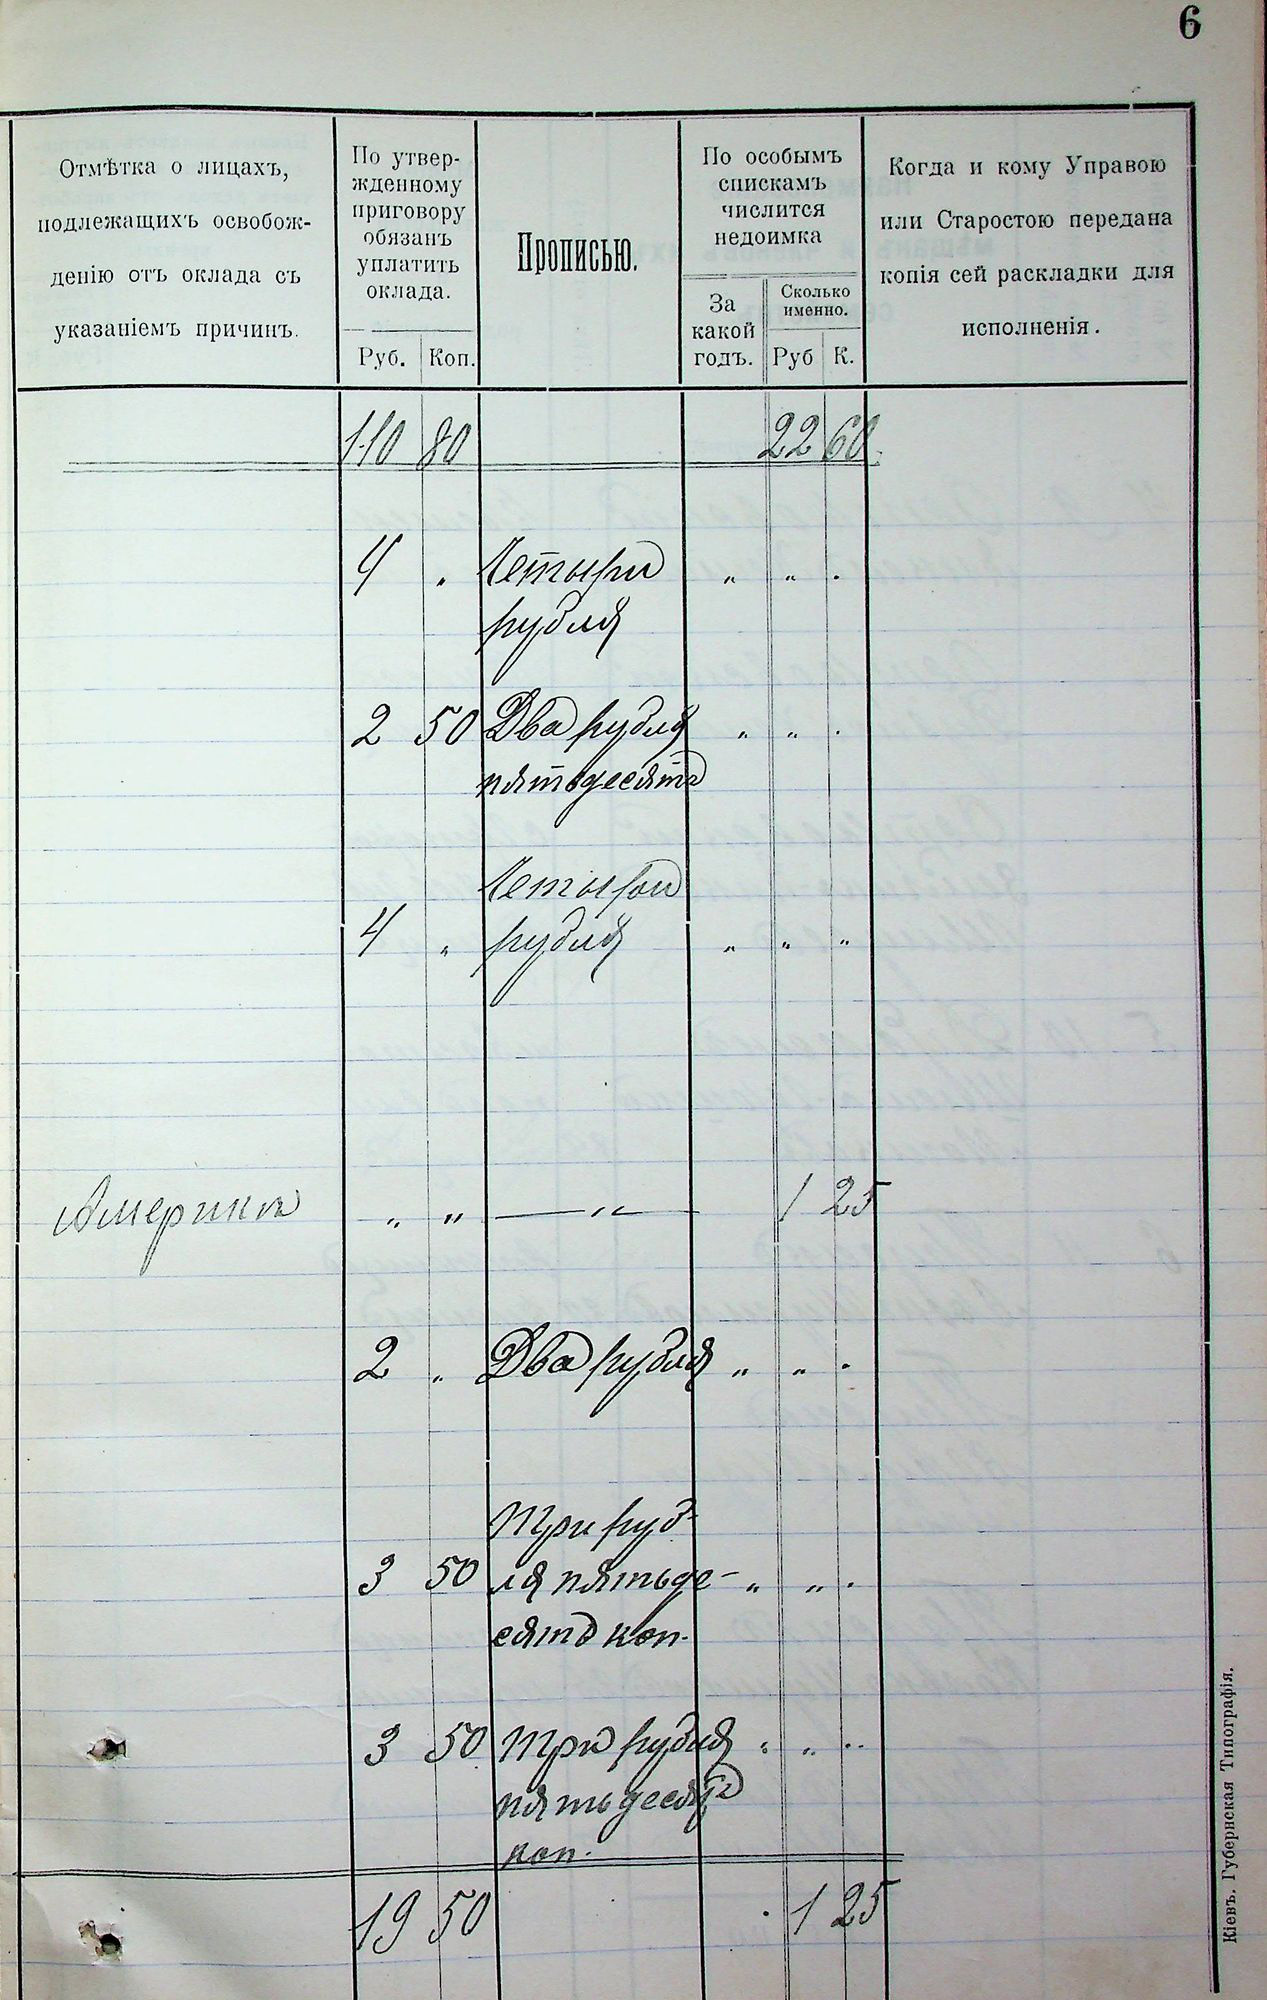 6
Отмѣтка о лицахъ,
подлежащихъ освобож-
денію отъ оклада съ
указаніемъ причинъ.
По утвер-
жденному
приговору
обязанъ
уплатить
оклада.
Руб. Коп.
Прописью.
По особымъ
спискамъ
числится
недоимка
За
какой
годъ.
Сколько
именно.
Руб К.
Когда и кому Управою
или Старостою передана
копія сей раскладки для
исполненія.
110 80 22 60
4 „ Четыри „ „ „
рубля
2 50 Два рубля „ „ „
пятьдесятъ
Четыри
4 „ рубля „ „ „
Америка „ „ — „ — 1 25
2 „ Два рубля „ „ „
Три руб-
3 50 ля пятьде- „ „ „
сятъ коп.
3 50 Три рубля „ „ „
пятьдесятъ
коп.
19 50 1 25
Кіевъ. Губернская Типографія.